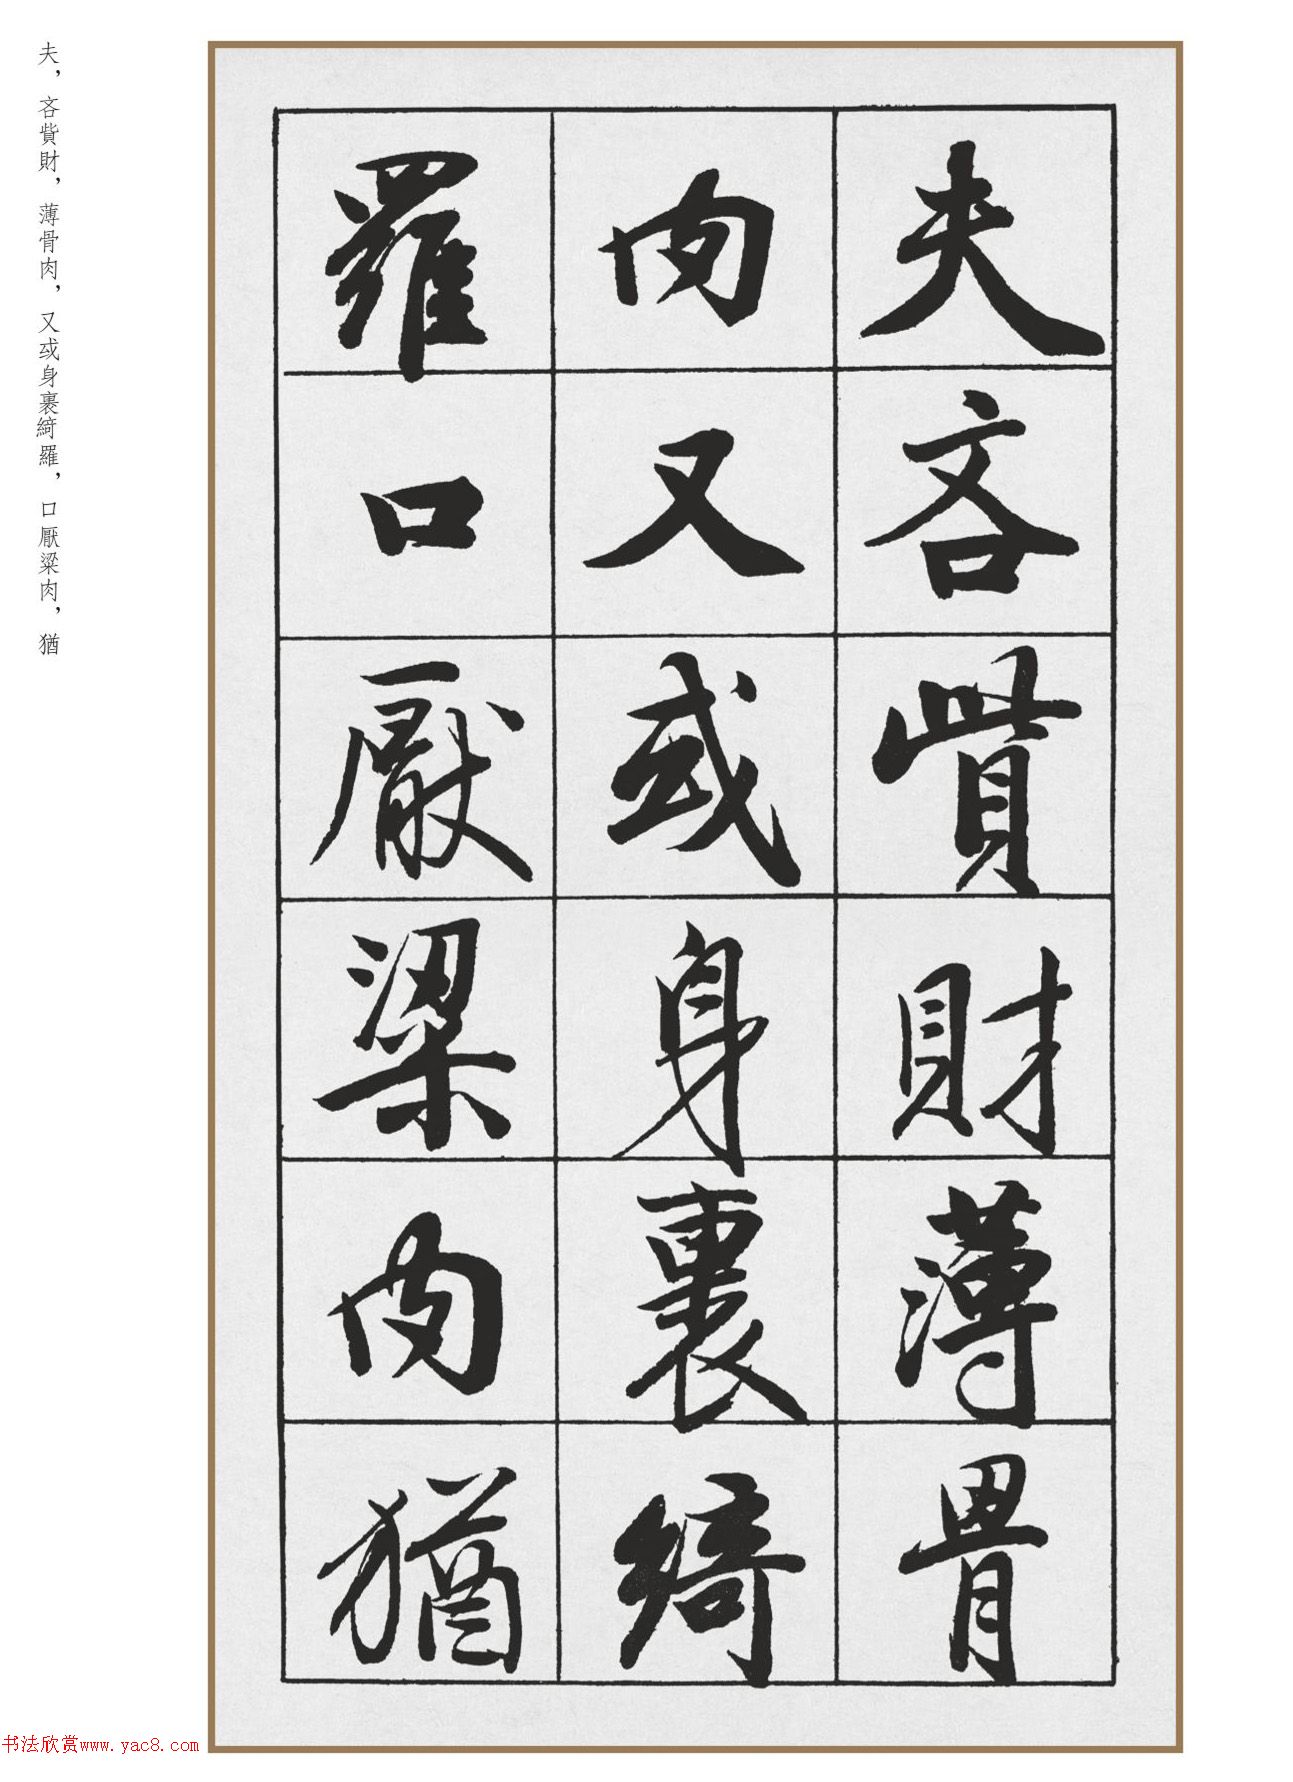 夫，吝貲財，薄骨肉，又或身裹綺羅，口厭粱肉，猶
夫吝貲財薄骨
肉又或身裹綺
羅口厭粱肉猶
书法欣赏www.yac8.com